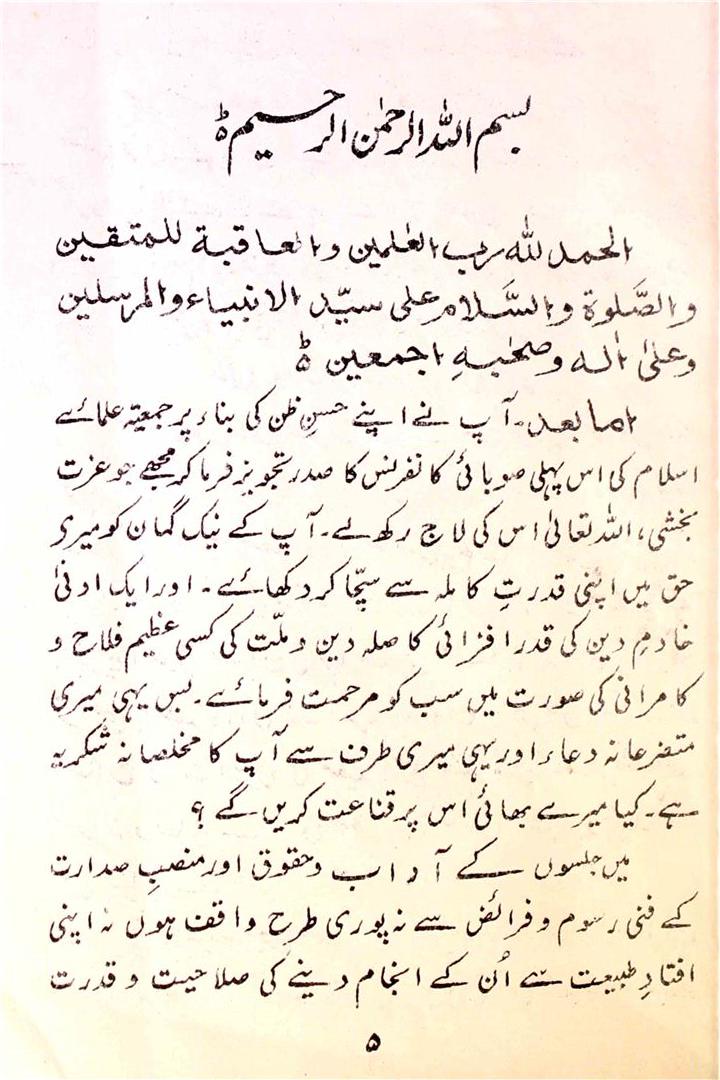 بسم اللہ الرحمٰن الرحیم ہ
الحمد للہ رب العٰلمین والعاقبة للمتقین
والصَّلوة والسَّلام علی سیّد الانبیاء والمرسلین
وعلیٰ اٰلہ وصحٰبہِ اجمعین ہ
اما بعد۔ آپ نے اپنے حسنِ ظن کی بناء پر جمعیتہ علمائے
اسلام کی اس پہلی صوبائی کانفرنس کا صدر تجویز فرما کر مجھے جو عزت
بخشی، اللہ تعالیٰ اس کی لاج رکھ لے۔ آپ کے نیک گمان کو میری
حق میں اپنی قدرتِ کاملہ سے سچّا کر دکھائے۔ اور ایک ادنیٰ
خادمِ دین کی قدر افزائی کا صلہ دین و ملّت کی کسی عظیم فلاح و
کامرانی کی صورت میں سب کو مرحمت فرمائے۔ بس یہی میری
متضرعانہ دعاء اور یہی میری طرف سے آپ کا مخلصانہ شکریہ
ہے۔ کیا میرے بھائی اس پر قناعت کریں گے ؟
میں جلسوں کے آداب وحقوق اور منصبِ صدارت
کے فنی رسوم و فرائض سے نہ پوری طرح واقف ہوں نہ اپنی
افتادِ طبیعت سے اُن کے انجام دینے کی صلاحیت و قدرت
۵